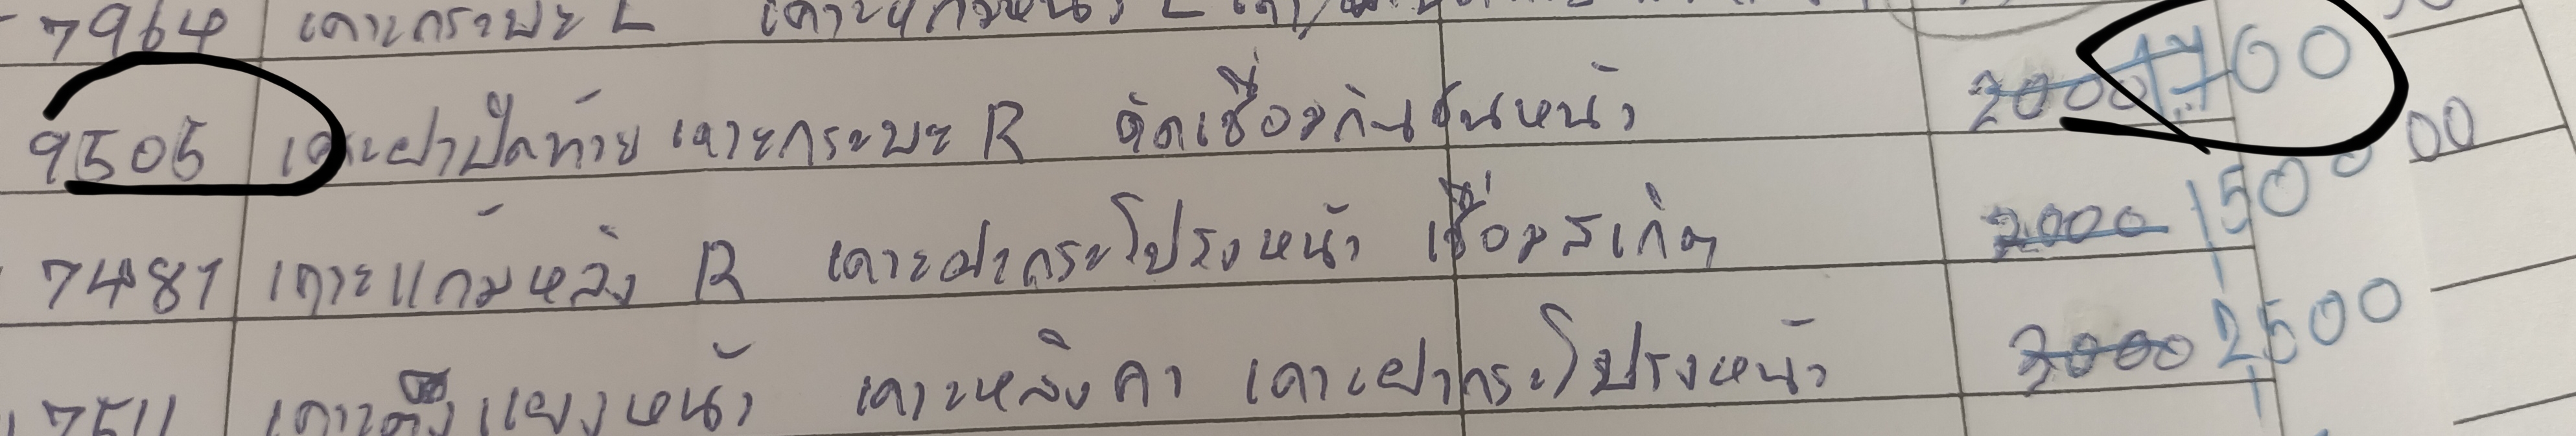 7964 เคาะกระบะ L เคาะแก้มหน้า L
9505 เคาะฝาปิดท้าย เคาะกระบะ R ตัดเชื่อมกันชนหน้า 2000 1700
7481 เคาะแก้มหลัง R เคาะฝากระโปรงหน้า เชื่อมสเกิต 2000 1500
7511 เคาะดึงแผงหน้า เคาะหลังคา เคาะฝากระโปรงหน้า 3000 2500